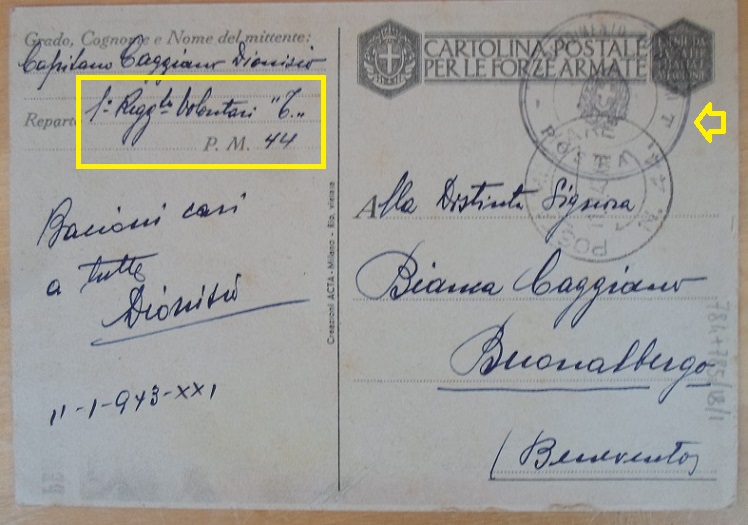 Grado, Cognome e Nome del mittente:
Capitano Caggiano Dionisio
1° Regg.to Volontari "T.„
Reparto
P. M. 44
Bacioni cari
a tutti
Dionisio
11-1-943-XXI
Creazioni ACTA - Milano - Rip. vietata
CARTOLINA POSTALE
PER LE FORZE ARMATE
POSTA
Alla Distinta Signora
Bianca Caggiano
Buonalbergo
(Benevento)